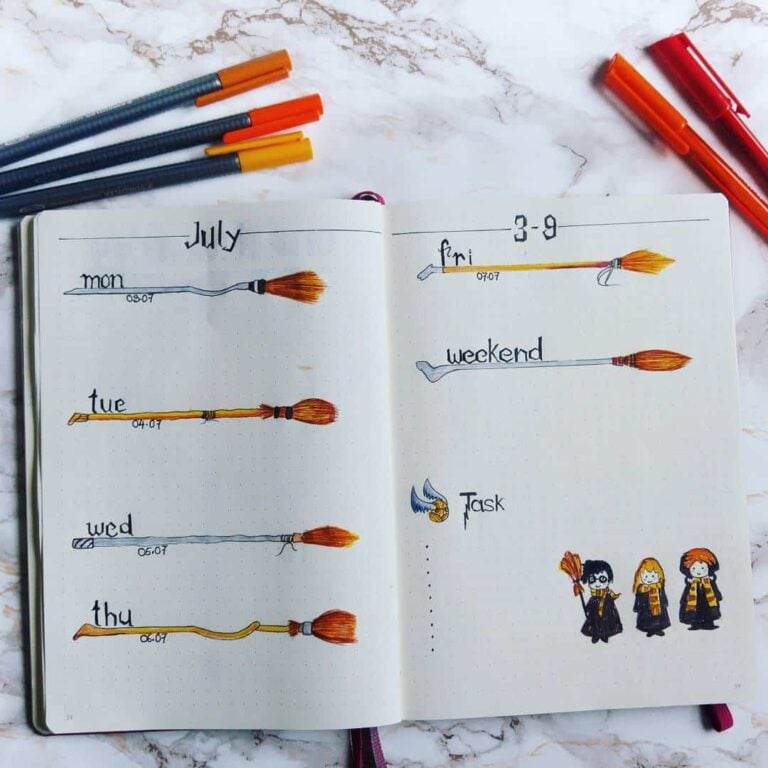 July
mon
03.07
tue
04.07
wed
05.07
thu
06.07
3-9
fri
07.07
weekend
Task